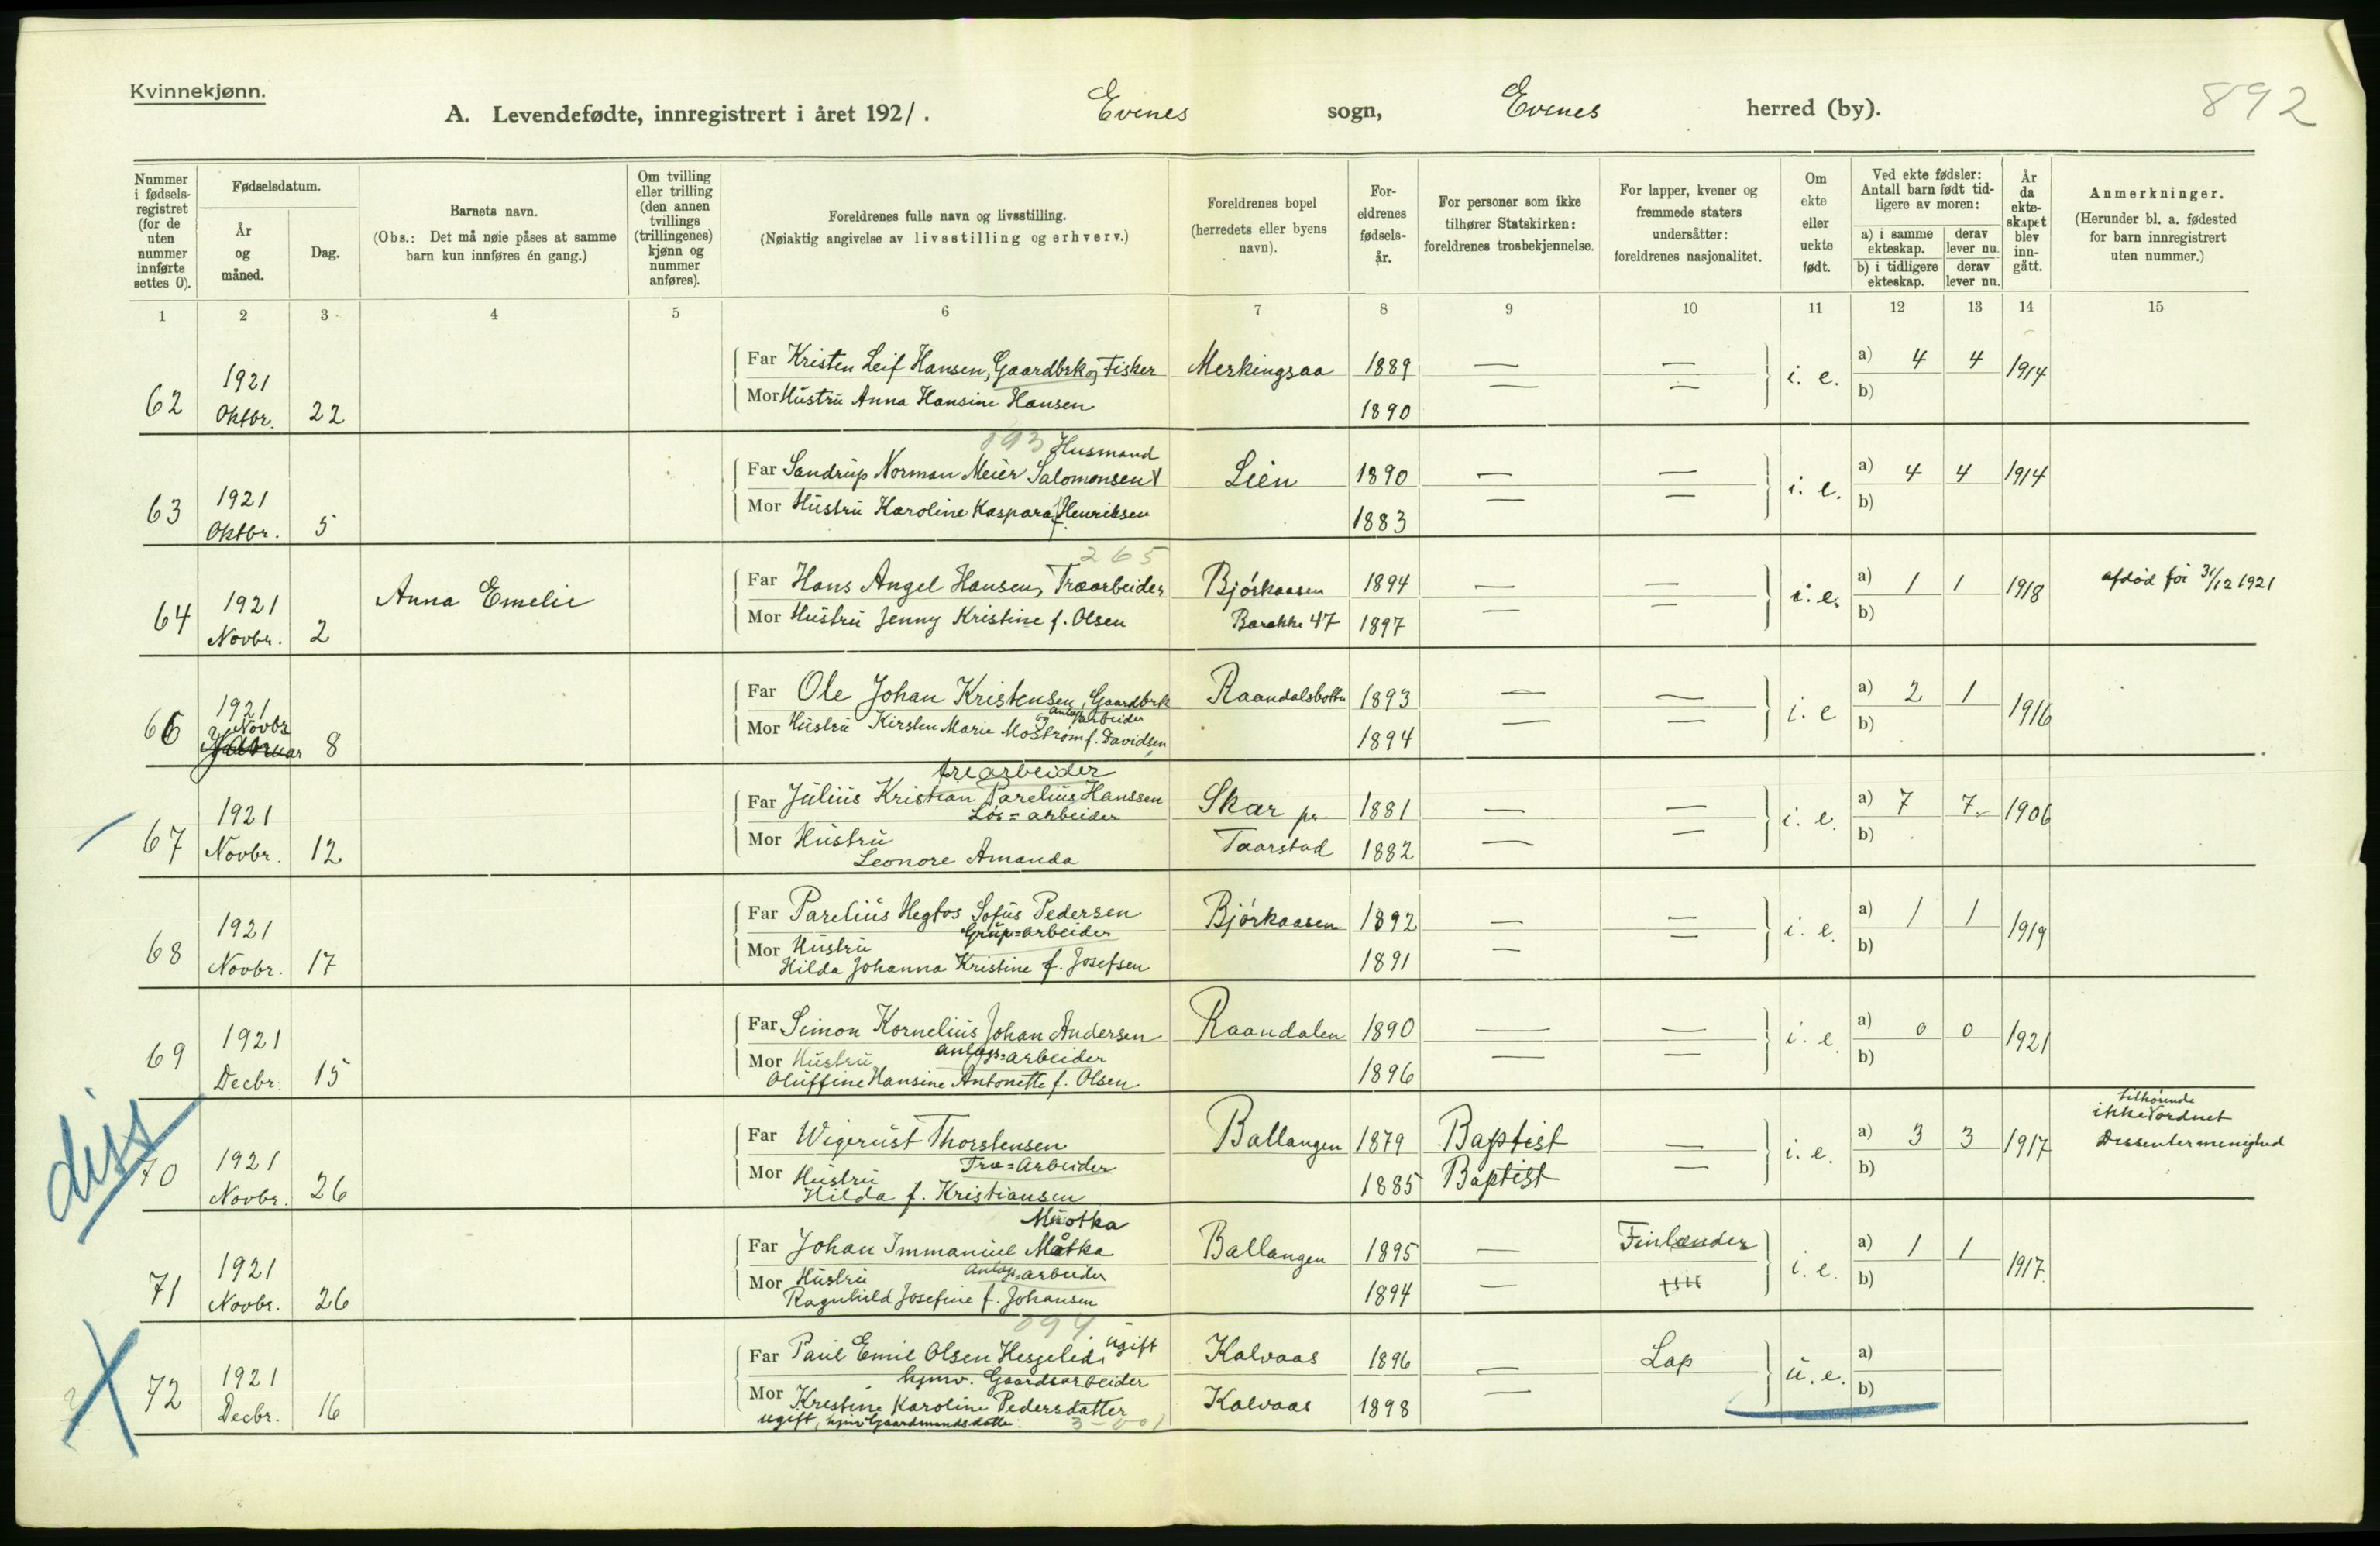 Kvinnekjønn.
892
A. Levendefødte, innregistrert i året 1921. Evenes sogn, Evenes herred (by).
Nummer i fødsels-registret (for de uten nummer innførte settes 0).
Fødselsdatum.
År og måned.
Dag.
Barnets navn.
(Obs.: Det må nøie påses at samme barn kun innføres én gang.)
Om tvilling eller trilling (den annen tvillings (trillingenes) kjønn og nummer anføres).
Foreldrenes fulle navn og livsstilling.
(Nøiaktig angivelse av livsstilling og erhverv.)
Foreldrenes bopel (herredets eller byens navn).
For-eldrenes fødsels-år.
For personer som ikke tilhører Statskirken: foreldrenes trosbekjennelse.
For lapper, kvener og fremmede staters undersåtter: foreldrenes nasjonalitet.
Om ekte eller uekte født.
Ved ekte fødsler: Antall barn født tid-ligere av moren:
a) i samme ekteskap.
derav lever nu.
b) i tidligere ekteskap.
derav lever nu.
År da ekte-skapet blev inn-gått.
Anmerkninger.
(Herunder bl. a. fødested for barn innregistrert uten nummer.)
1 2 3 4 5 6 7 8 9 10 11 12 13 14 15
62 1921 Oktbr. 22
Far Kristen Leif Hansen, Gaardbrk og Fisker Merkingsaa 1889 — — i. e. a) 4 4 1914
Mor Hustru Anna Hansine Hansen 1890 — — b)
893 Husmand
63 1921 Oktbr. 5
Far Sandrup Norman Meier Salomonsen Lien 1890 — — i. e. a) 4 4 1914
Mor Hustru Karoline Kaspara f. Henriksen 1883 — — b)
265
64 1921 Novbr. 2 Anna Emelie
Far Hans Angel Hansen, Træarbeider Bjørkaasen 1894 — — i. e. a) 1 1 1918 afdød før 31/12 1921
Mor Hustru Jenny Kristine f. Olsen Barakke 47 1897 — — b)
66 1921 Novbr 8
Far Ole Johan Kristensen, Gaardbrk Raandalsbotn 1893 — — i. e a) 2 1 1916
og anlægsarbeider
Mor Hustru Kirsten Marie Mostrøm f. Davidsen 1894 — — b)
trearbeider
67 1921 Novbr. 12
Far Julius Kristian Parelius Hanssen Skar pr. 1881 — — i. e. a) 7 7 1906
Løs=arbeider
Mor Hustru Taarstad 1882 — — b)
Leonore Amanda
68 1921 Novbr. 17
Far Parelius Hegtos Sofus Pedersen Bjørkaasen 1892 — — i. e. a) 1 1 1919
Grup=arbeider
Mor Hustru 1891 — — b)
Hilda Johanna Kristine f. Josefsen
69 1921 Decbr. 15
Far Simon Kornelius Johan Andersen Raandalen 1890 — — i. e. a) 0 0 1921
anlægs=arbeider
Mor Hustru 1896 — — b)
Oluffine Hansine Antonette f. Olsen
diss
70 1921 Novbr. 26
Far Wigerust Thorstensen Ballangen 1879 Baptist — i. e. a) 3 3 1917 ikke tilhørende ordnet Dissentermenighed
Træ=Arbeider
Mor Hustru 1885 Baptist — b)
Hilda f. Kristiansen
Muotka
71 1921 Novbr. 26
Far Johan Immanuel Måtka Ballangen 1895 — Finlænder i. e. a) 1 1 1917.
Anlægsarbeider
Mor Hustru 1894 — b)
Ragnhild Josefine f. Johansen
894
72 1921 Decbr. 16
Far Paul Emil Olsen Hesjelid, ugift Kalvaas 1896 — Lap u. e. a)
hjmv. Gaardsarbeider
Mor Kristine Karoline Pedersdatter Kalvaas 1898 — b)
ugift, hjmv Gaardmandsdatter.